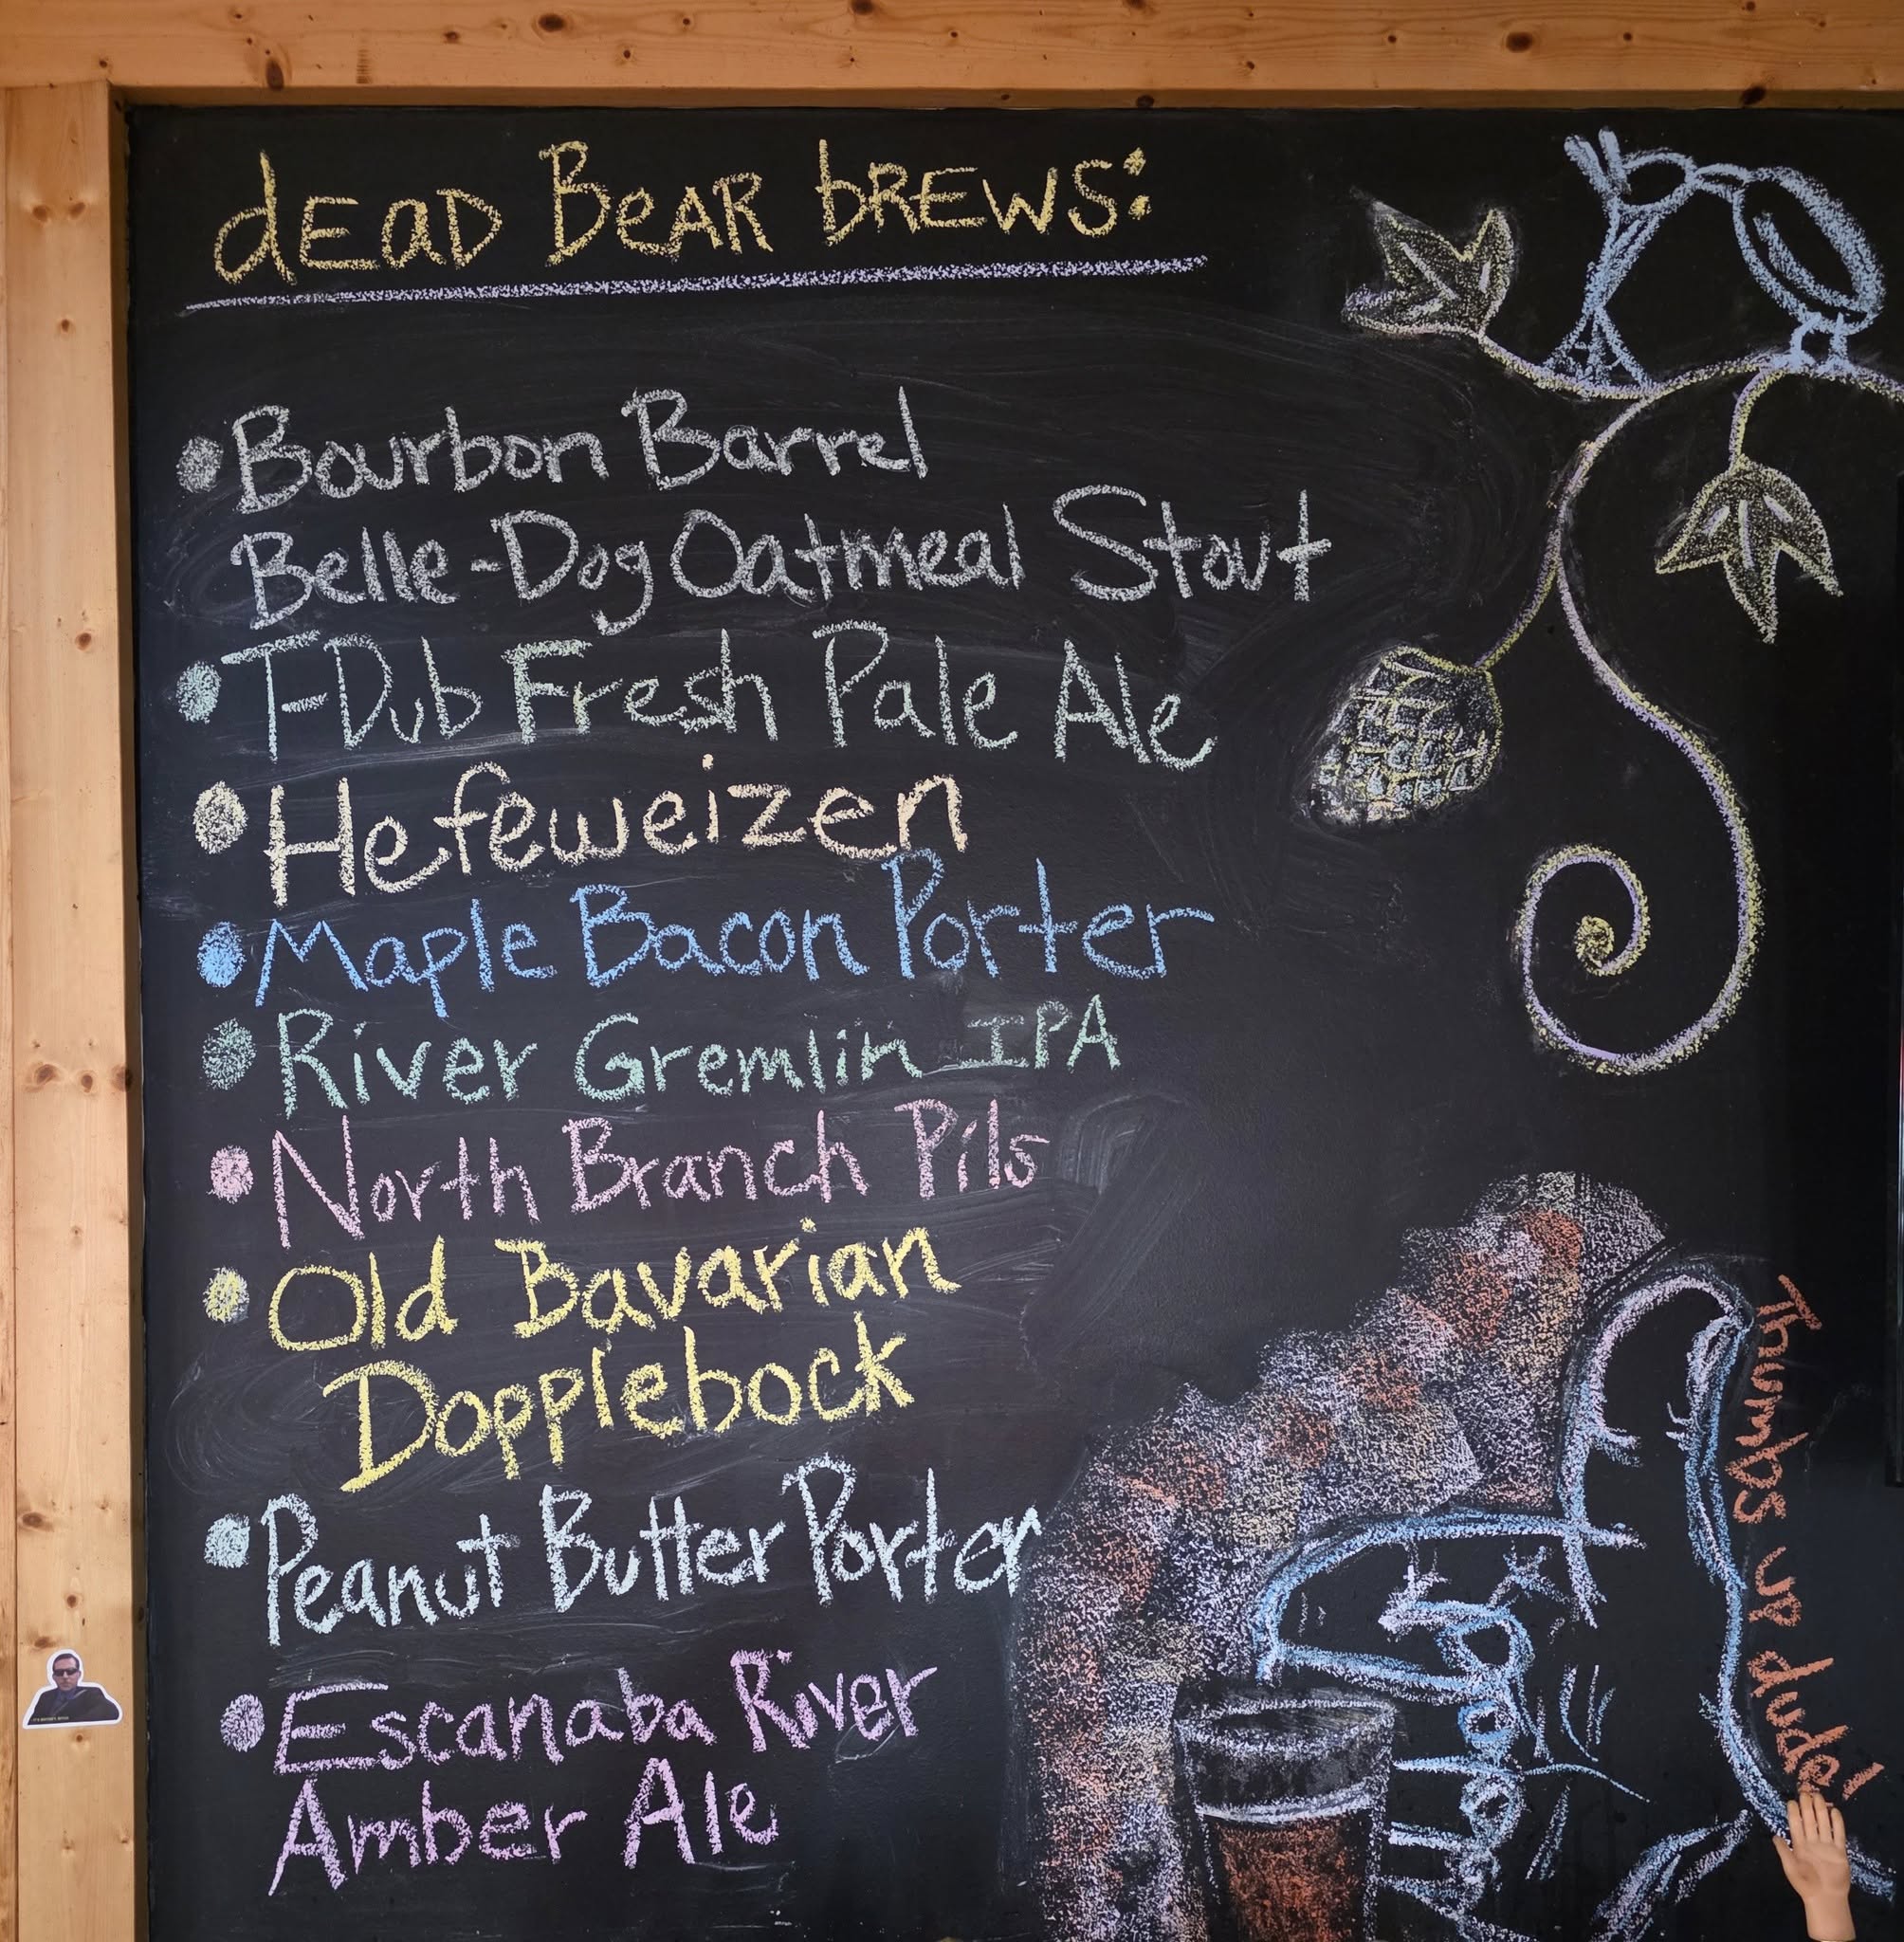 dEaD BeAR bREWS:
• Bourbon Barrel
Belle-Dog Oatmeal Stout
• T-Dub Fresh Pale Ale
• Hefeweizen
• Maple Bacon Porter
• River Gremlin IPA
• North Branch Pils
• Old Bavarian
Dopplebock
• Peanut Butter Porter
• Escanaba River
Amber Ale
Thumbs up dude!